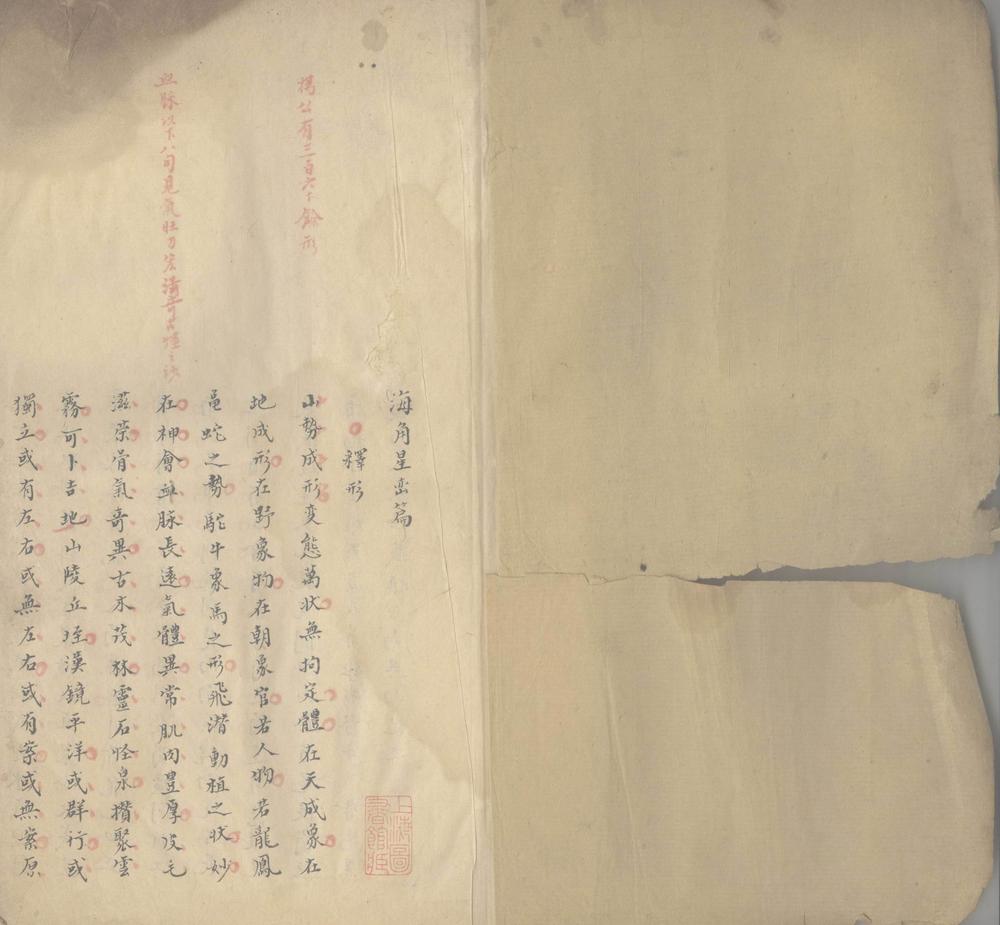 海角星巒篇
釋形
山勢成形変態萬状無拘定體在天成象在
地成形在野象物在朝象官若人物若龍鳳
黽蛇之勢駝牛象馬之形飛潛動植之状妙
在神會血脉長遠氣體異常肌肉豊厚皮毛
滋荣骨氣奇異古木茂林靈石怪泉攢聚雲
霧可卜吉地山陵丘垤漢鏡平洋或群行或
獨立或有左右或無左右或有案或無案原
楊公有三百六十餘形
血脉以下八句見氣旺乃
上海圖書館藏